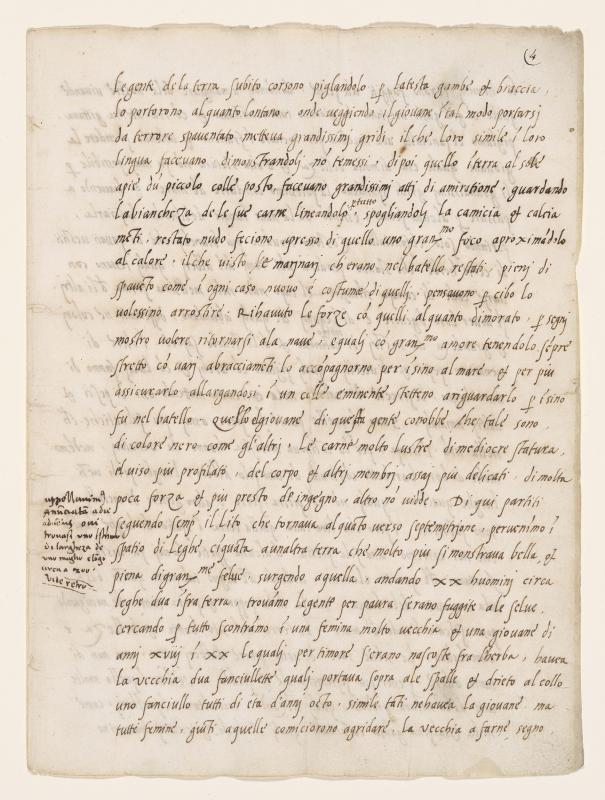 4
le gente de la terra subito corsono piglandolo p la testa gambe et braccia,
lo portorono alquanto lontano, onde veggiendo il giovane ĩ tal modo portarsj
da terrore spaventato metteva grandissimj gridi, il che loro simile ĩ loro
lingua facevano dimonstrandolj nõ temessi, dipoi quello ĩ terra al sole
a pie dũ piccolo colle posto, facevano grandissimj attj di amiratione, guardando
la biancheza de le sue carne lineandolo ptutto, spogliandolj la camicia et calcia
mẽti, restato nudo feciono apresso di quello uno granmo fuco aproximãdolo
al calore, il che visto le marinarj ch erano nel batello restati, pienj di
spavẽto come ĩ ogni caso nuovo e costume di quellj, pensavono p cibo lo
volessino arrostire. Rihavuto le forze cõ quelli alquanto dimorato, p segnj
mostro volere ritornarsi a la nave, e qualj cõ granmo amore tenendolo sẽpre
stretto cõ varj abracciamẽti lo accopagnorno per ĩsino al mare, et per piu
assicurarlo allargandosi ĩ un colle eminente stetteno a riguardarlo p ĩsino
fu nel batello. Quello el giovane di questa gente conobbe che tale sono,
di colore nero come gl'altrj, le carne molto lustre, di mediocre statura,
el viso piu profilato, del corpo et altri membrj assaj piu delicati, di molta
poca forza et piu presto de ingegno, altro no vidde. Di qui partiti
seguendo semp il lito che tornava alquãto verso septemptrione, pervenimo ĩ
spatio di leghe cĩquãta a unaltra terra che molto piu si monstrava bella, et
piena di granme selve, surgendo a quella, andando XX huominj circa
leghe dua ĩfra terra, trovãmo le gente per paura serano fuggite a le selve,
cercando p tutto scontrãmo ĩ una femina molto vecchia et una giovane di
annj xviij ĩ XX le qualj per timore serano nascoste fra l'herba, haveva
la vecchia dua fanciullette qualj portava sopra a le spalle et drieto al collo
uno fanciullo tutti di eta d'annj octo, simile tãti ne haveva la giovane ma
tutte femine, giũti a quelle comĩciorono a gridare, la vecchia a farne segno,
appellavimo
Annũciata a die
advẽtus ove
trovasi uno isthmo
di largheza de
uno miglio e lõgo
circa a 200
Vide retro